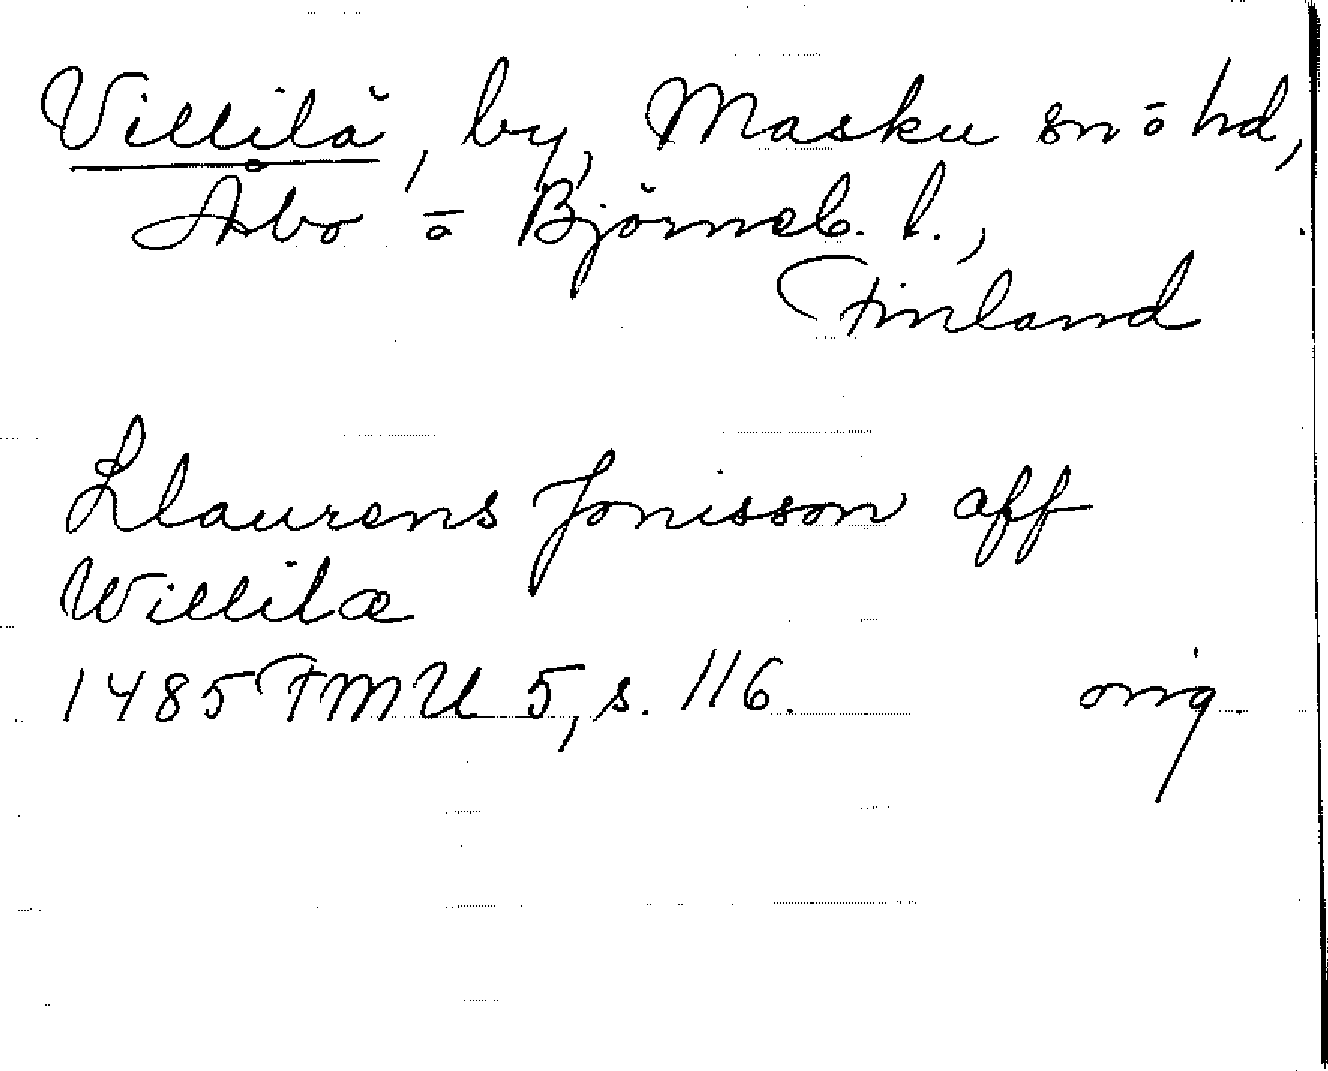 Villilä, by, Masku sn o hd,
Åbo o Björneb. l.,
Finland
Llaurens Jonisson aff
Willilæ
1485 FMU 5, s. 116. orig.